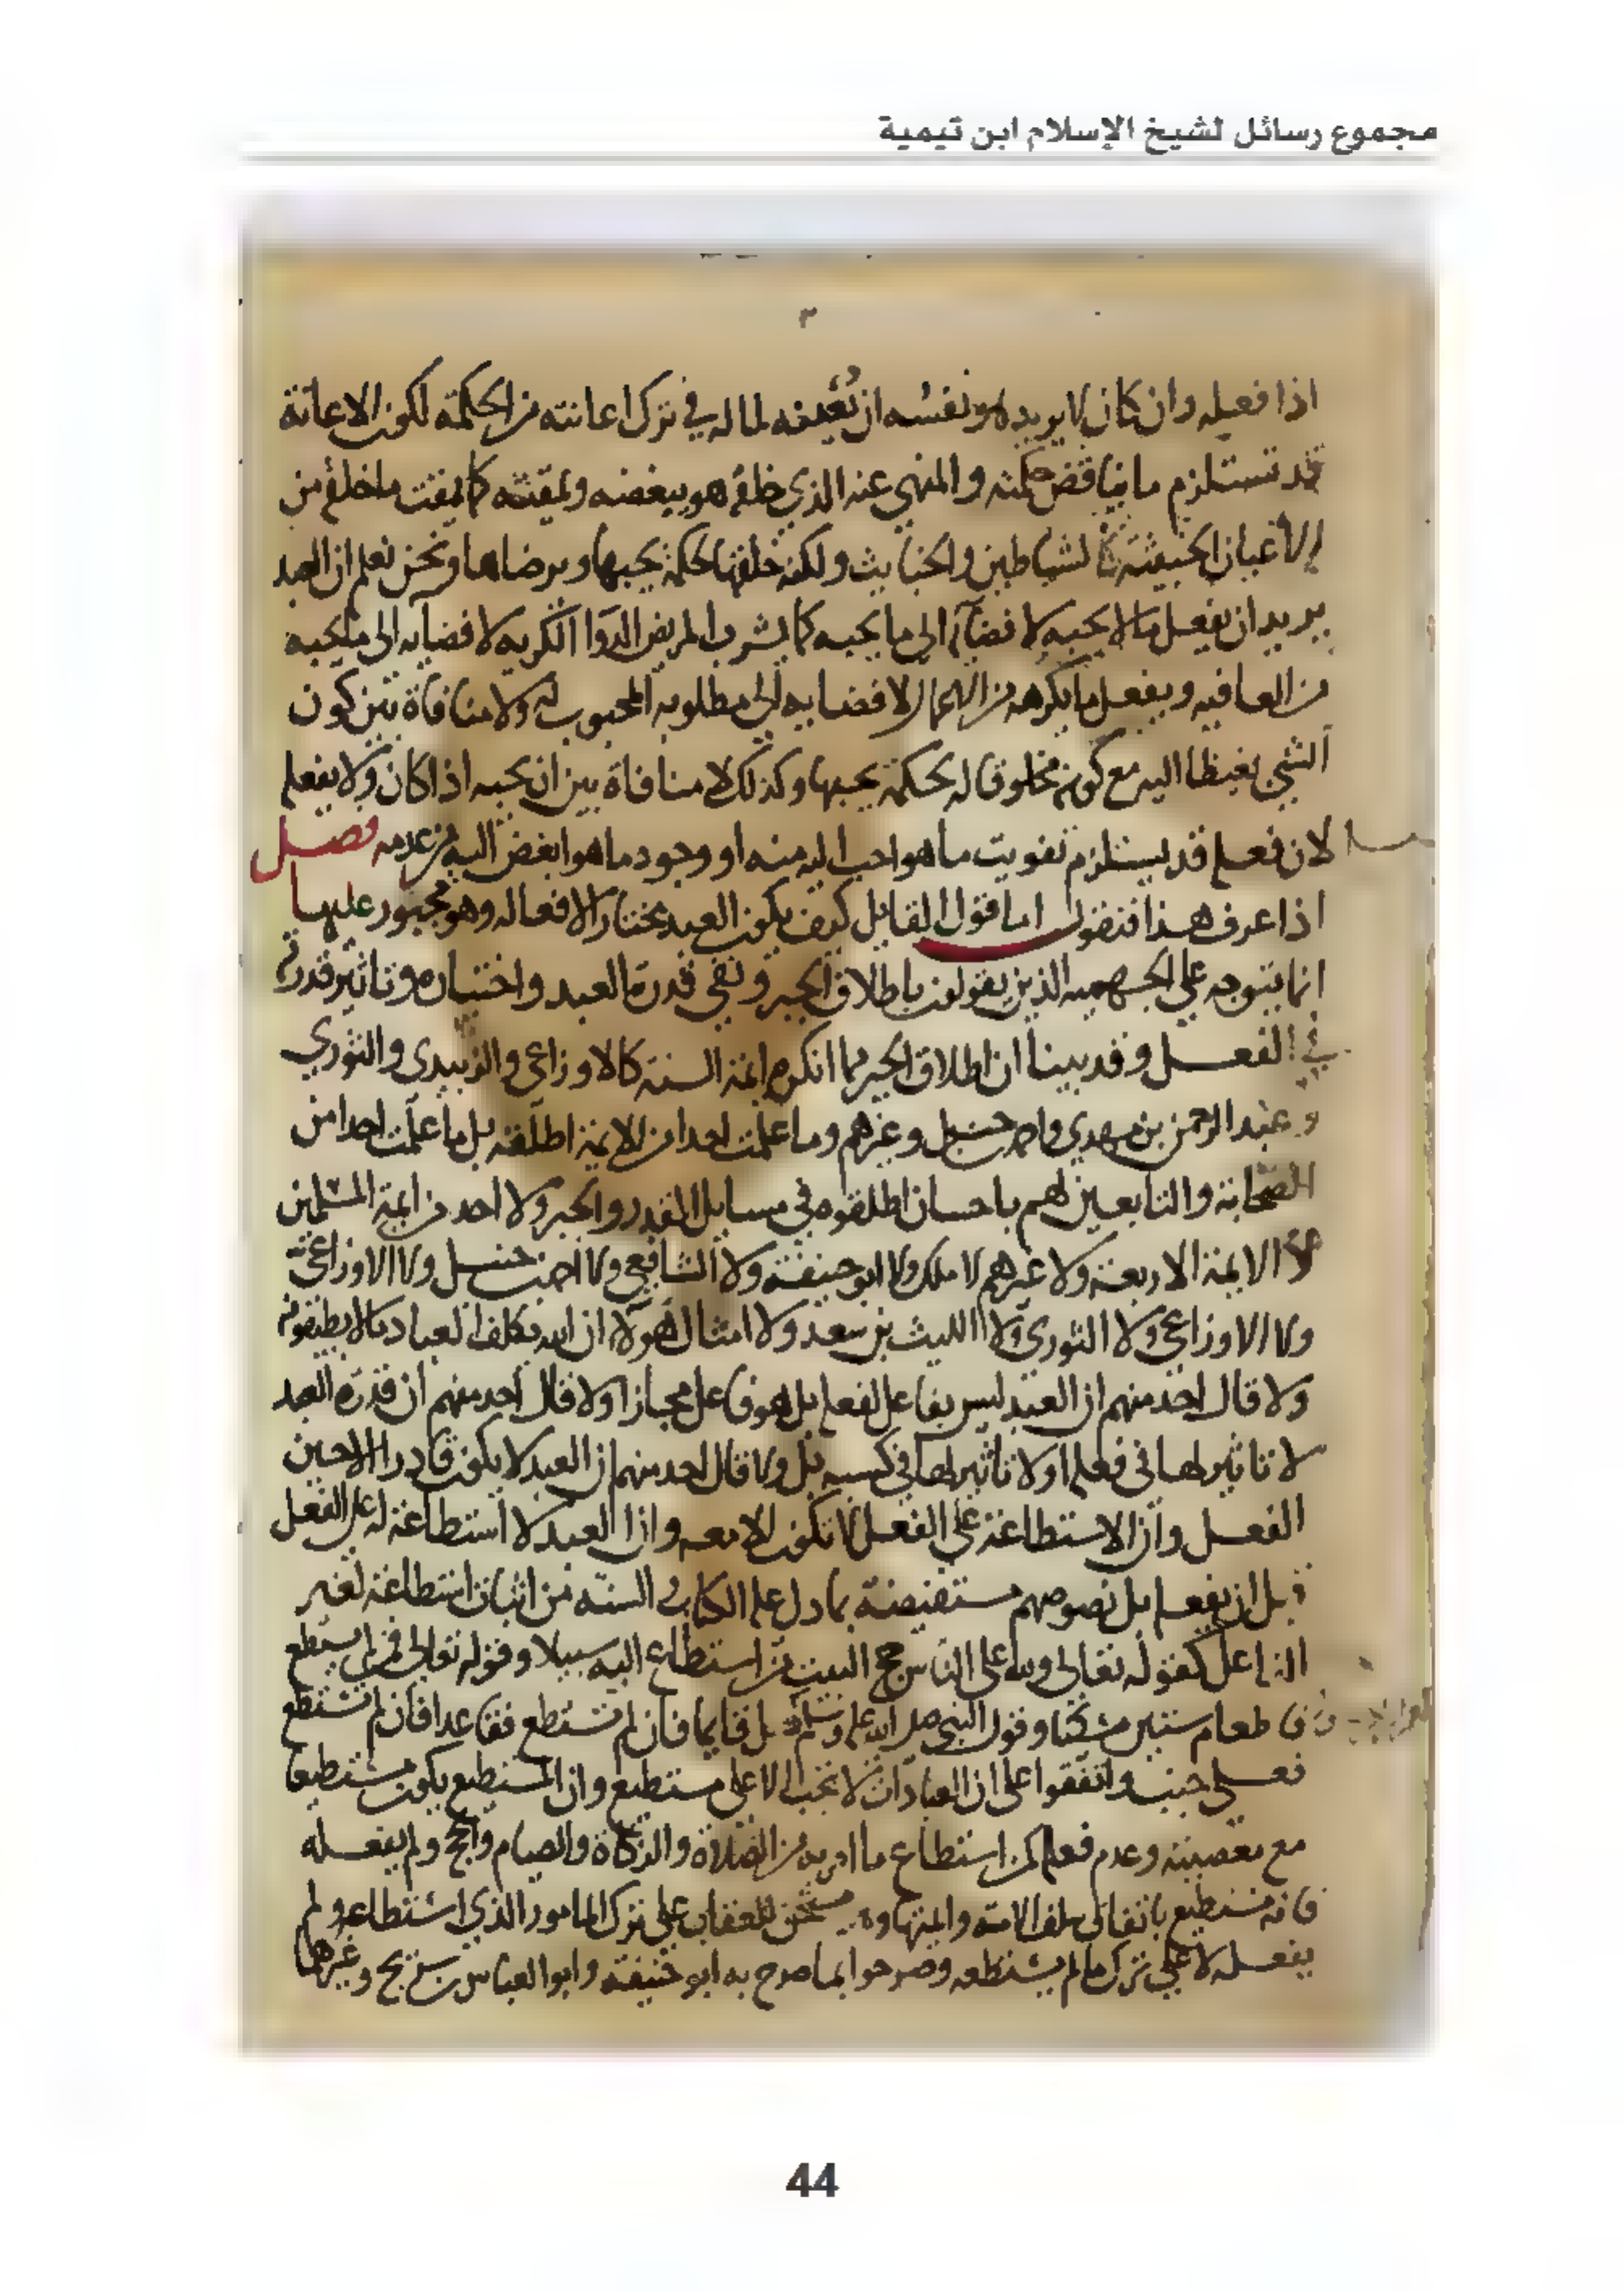 مجموع رسائل لشيخ الإسلام ابن تيمية
٣
اذا فعله وان كان لا يريد هو نفسه ان يعينه لما له في ترك اعانته من الحكمة لكون الاعانة
قد تستلزم ما يناقض حكمته والمنهي عنه الذي خلقه هو يبغضه ويمقته كما يمقت ما خلقه من
الاعيان الخبيثة كالشياطين والخبايث ولكنه خلقها لحكمة يحبها ويرضاها ونحن نعلم ان العبد
يريد ان يفعل ما لا يحبه لافضآئه الى ما يحبه كما يشرب المريض الدوا الكريه لافضآيه الى ما يحبه
من العافيه ويفعل ما يكرهه من الاعمال لافضايه الى مطلوبه المحبوب له ولا منافاة بين كون
الشي بغيضا اليه مع كونه مخلوقا له لحكمة يحبها وكذلك لا منافاة بين ان يحبه اذا كان ولا يفعله
لان فعله قد يستلزم تفويت ما هو احب اليه منه او وجود ما هو ابغض اليه من عدمه فصل
اذا عرف هذا فنقول اما قول القايل كيف يكون العبد مختارا لافعاله وهو مجبور عليها
انما يتوجه على الجهميه الذين يقولون باطلاق الجبر ونفي قدرة العبد واختياره وتاثير قدرته
في الفعل وقد بينا ان اطلاق الجبر مما انكره ايمة السنة كالاوزاعي والزبيدي والثوري
وعبد الرحمن بن مهدي واحمد بن حنبل وغيرهم وما علمت احدا من الايمة اطلقه بل ما علمت احدا من
الصحابة والتابعين لهم باحسان اطلقوه في مسايل القدر والجبر ولا احد من ايمة المسلمين
لا الايمة الاربعة ولا غيرهم لا ملك ولا ابو حنيفة ولا الشافعي ولا احمد بن حنبل ولا الاوزاعي
ولا الاوزاعي ولا الثوري ولا الليث بن سعد ولا امثال هولآء ان الله يكلف العباد ما لا يطيقونه
ولا قال احد منهم ان العبد ليس بفاعل لفعله بل هو فاعل مجازا ولا قال احد منهم ان قدرة العبد
لا تاثير لها في فعله او لا تاثير لها في كسبه بل ولا قال احد منهم ان العبد لا يكون قادرا الا حين
الفعل وان الاستطاعة على الفعل لا تكون الا معه وان العبد لا استطاعة له على الفعل
قبل ان يفعله بل نصوصهم مستفيضة بما دل عليه الكتاب والسنة من اثبات استطاعة لغير
الفاعل كقوله تعالى ولله على الناس حج البيت من استطاع اليه سبيلا وقوله تعالى فمن لم يستطع
فاطعام ستين مسكينا وقول النبي صلى الله عليه وسلم صل قايما فان لم تستطع فقاعدا فان لم تستطع
فعلى جنب واتفقوا على ان العبادات لا تجب الا على مستطيع وان المستطيع يكون مستطيعا
مع معصيته وعدم فعله كمن استطاع ما امر به من الصلاة والزكاة والصيام والحج ولم يفعله
فانه مستطيع باتفاق سلف الامة وايمتها وهو مستحق للعقاب على ترك المامور الذي استطاعه ولم
يفعله لا على ترك ما لم يستطعه وصرحوا بما صرح به ابو حنيفة وابو العباس بن سريج وغيرهما
44